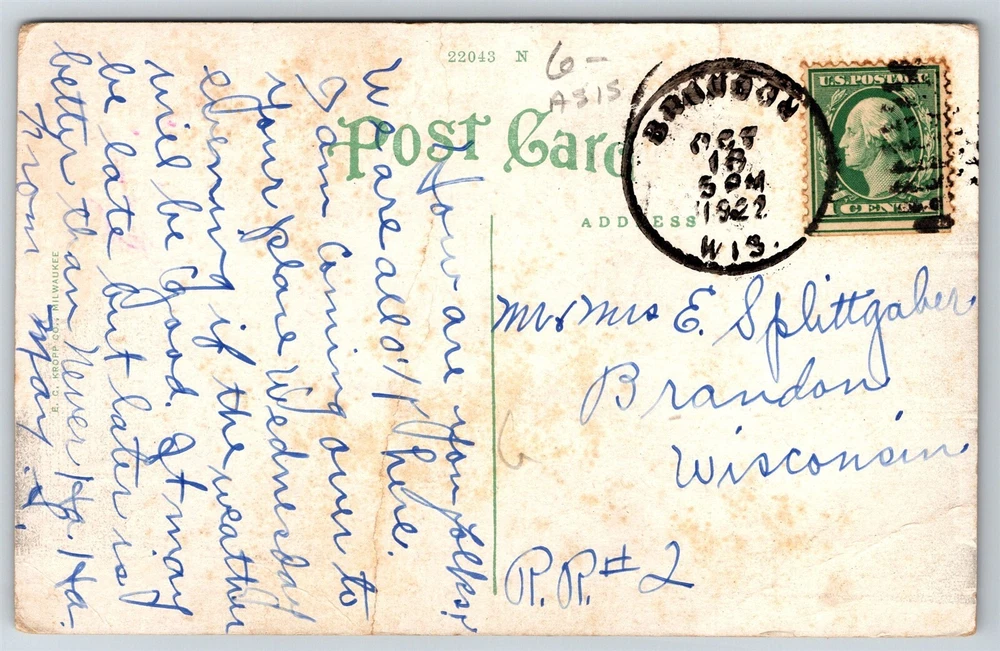 22043 N
6-
AS IS
Post Card
ADDRESS
BRANDON
OCT
18
5 PM
1922
WIS.
U.S. POSTAGE
1 CENT
How are you folks?
We are all O.K. here.
I am coming over to
your place Wednesday
evening if the weather
will be Good. It may
be late but later is
better than Never Ha. Ha.
From May.
E. C. KROPP CO., MILWAUKEE
Mr & Mrs E. Splittgaber
Brandon
Wisconsin
R.R.# 2